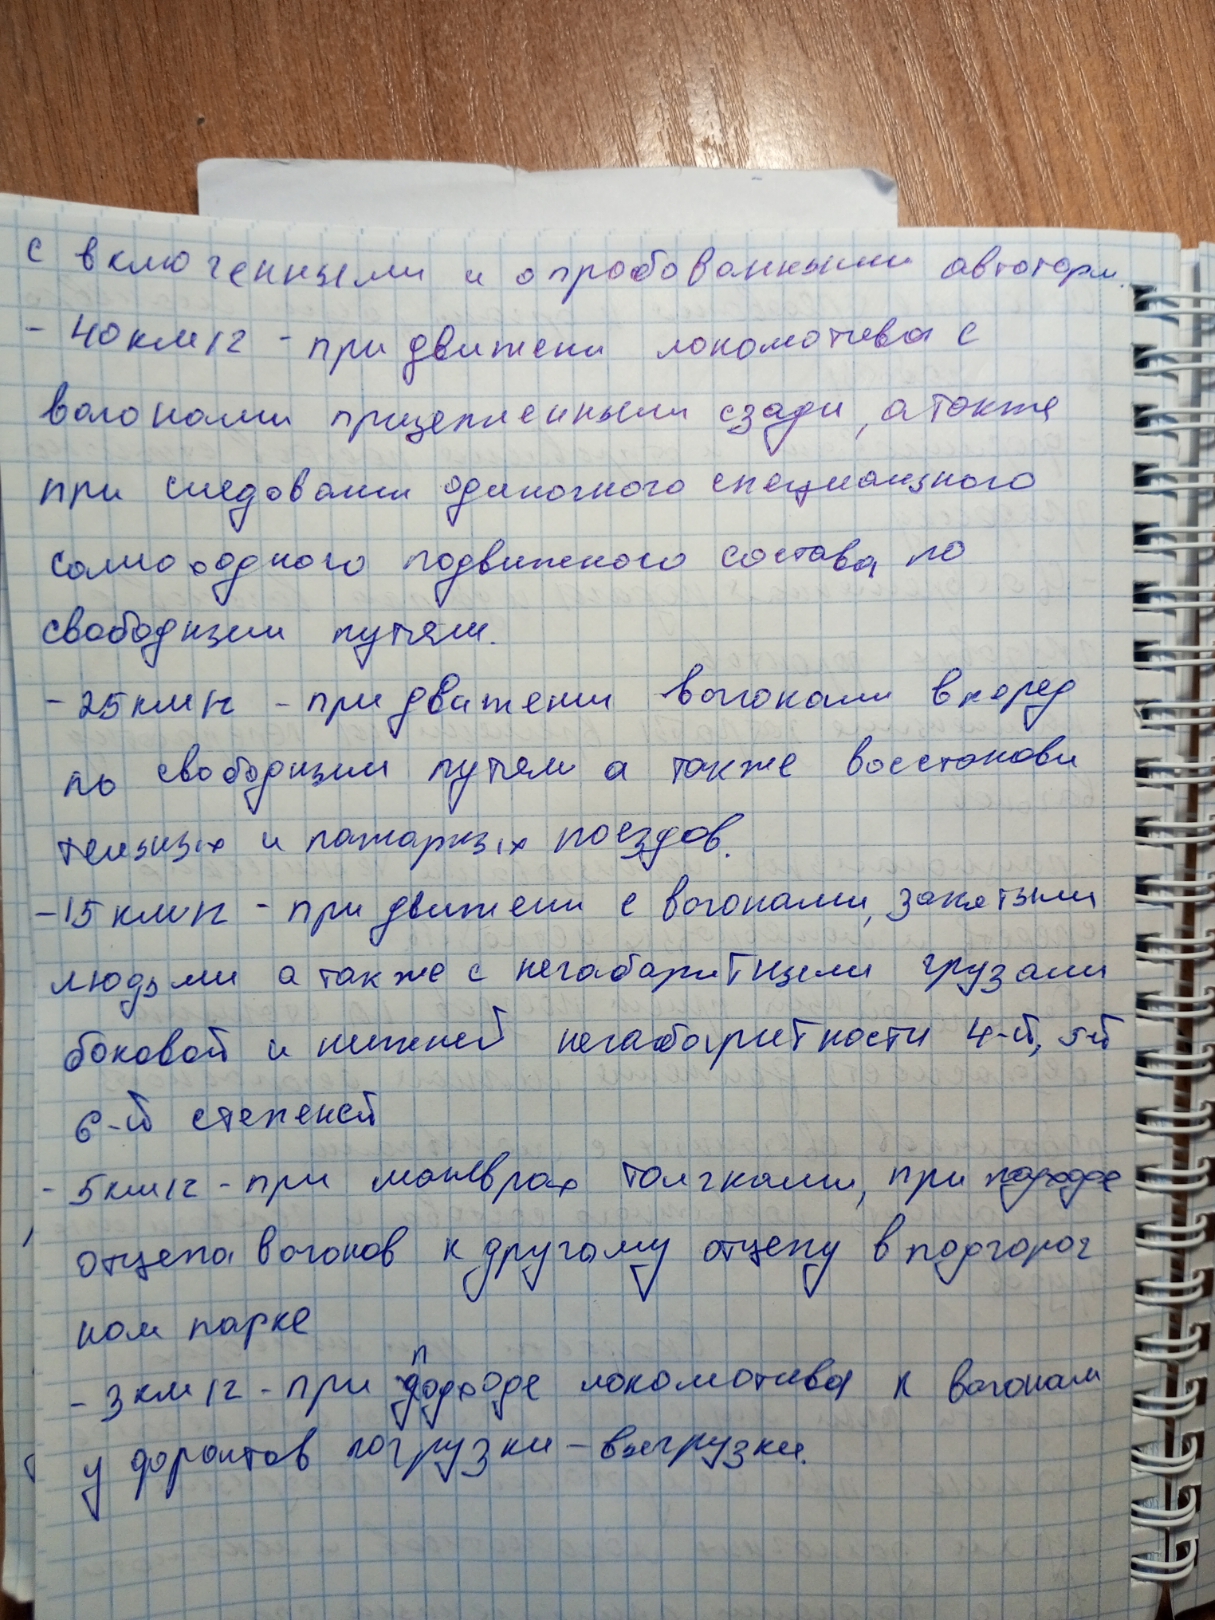 с включенными и опробованными автоторм.
- 40 км/г - при движени локомотива с
вагонами прицепленными сзади, а также
при следовании одиночного специального
самоходного подвижного состава по
свободным путям.
- 25 км/г - при движении вагонами вперед
по свободным путям а также восстанови
тельных и пожарных поездов.
- 15 км/г - при движени с вагонами, занятыми
людьми а также с негабаритными грузами
боковой и нижней негабаритности 4-й, 5-й
6-й степеней
- 5 км/г - при маневрах толчками, при подходе
отцепа вагонов к другому отцепу в подгороч
ном парке
- 3 км/г - при подходе локомотива к вагонам
у фронтов погрузки - выгрузки.